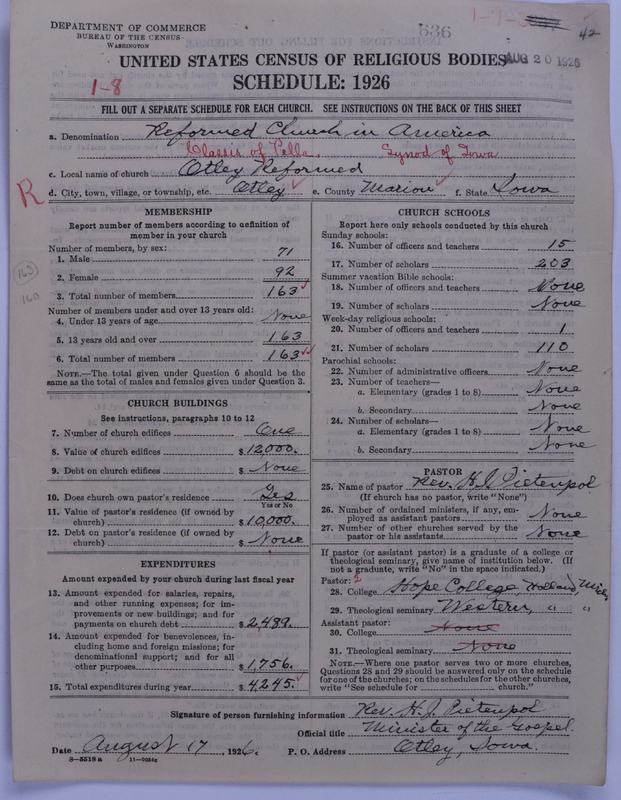 DEPARTMENT OF COMMERCE
BUREAU OF THE CENSUS
WASHINGTON
536
42
AUG 20 1926
UNITED STATES CENSUS OF RELIGIOUS BODIES
SCHEDULE: 1926
1-8
FILL OUT A SEPARATE SCHEDULE FOR EACH CHURCH. SEE INSTRUCTIONS ON THE BACK OF THIS SHEET
a. Denomination Reformed Church in America
Classis of Pella, Synod of Iowa
c. Local name of church Otley Reformed
d. City, town, village, or township, etc. Otley e. County Marion f. State Iowa
R
163
160
MEMBERSHIP
Report number of members according to definition of
member in your church
Number of members, by sex:
1. Male 71
2. Female 92
3. Total number of members 163
Number of members under and over 13 years old:
4. Under 13 years of age None
5. 13 years old and over 163
6. Total number of members 163
NOTE.—The total given under Question 6 should be the
same as the total of males and females given under Question 3.
CHURCH BUILDINGS
See instructions, paragraphs 10 to 12
7. Number of church edifices One
8. Value of church edifices $ 12,000.
9. Debt on church edifices $ None
10. Does church own pastor's residence Yes
Yes or No
11. Value of pastor's residence (if owned by
church) $ 10,000.
12. Debt on pastor's residence (if owned by
church) $ None
EXPENDITURES
Amount expended by your church during last fiscal year
13. Amount expended for salaries, repairs,
and other running expenses; for im-
provements or new buildings; and for
payments on church debt $ 2,489.
14. Amount expended for benevolences, in-
cluding home and foreign missions; for
denominational support; and for all
other purposes $ 1,756.
15. Total expenditures during year $ 4,245.
CHURCH SCHOOLS
Report here only schools conducted by this church
Sunday schools:
16. Number of officers and teachers 15
17. Number of scholars 203
Summer vacation Bible schools:
18. Number of officers and teachers None
19. Number of scholars None
Week-day religious schools:
20. Number of officers and teachers 1
21. Number of scholars 110
Parochial schools:
22. Number of administrative officers None
23. Number of teachers—
a. Elementary (grades 1 to 8) None
b. Secondary None
24. Number of scholars—
a. Elementary (grades 1 to 8) None
b. Secondary None
PASTOR
25. Name of pastor Rev. H. J. Pietenpol
(If church has no pastor, write "None")
26. Number of ordained ministers, if any, em-
ployed as assistant pastors None
27. Number of other churches served by the
pastor or his assistants None
If pastor (or assistant pastor) is a graduate of a college or
theological seminary, give name of institution below. (If
not a graduate, write "No" in the space indicated.)
Pastor: 2
28. College Hope College, Holland Mich.
29. Theological seminary Western, " "
Assistant pastor:
30. College None
31. Theological seminary None
NOTE.—Where one pastor serves two or more churches,
Questions 28 and 29 should be answered only on the schedule
for one of the churches; on the schedules for the other churches,
write "See schedule for church."
Signature of person furnishing information Rev. H. J. Pietenpol
Official title Minister of the Gospel
Date August 17, 1926. P. O. Address Otley, Iowa.
8—5518 a 11—9054a